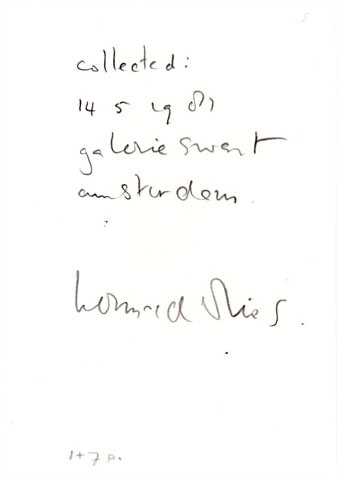 collected:
14 5 19 81
galerie swart
amsterdam.
1+7 p.